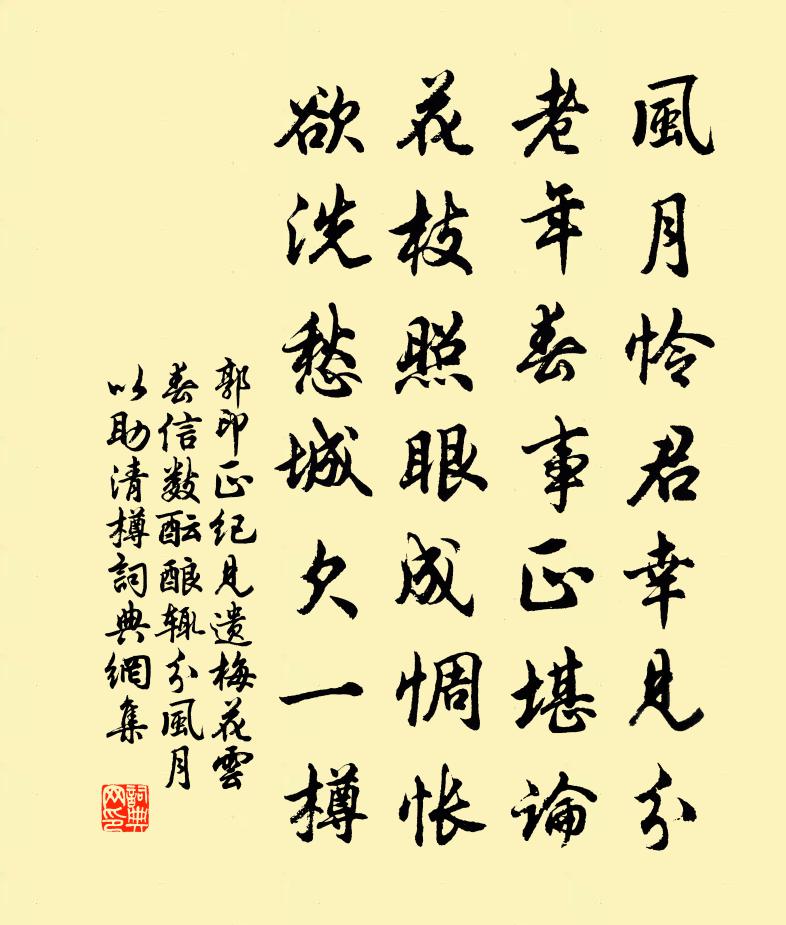 風月怜君幸見分
老年春事正堪論
花枝照眼成惆怅
欲洗愁城欠一樽
郭印正紀見遗梅花雲
春信数酝酿辄分風月
以助清樽詞典網集